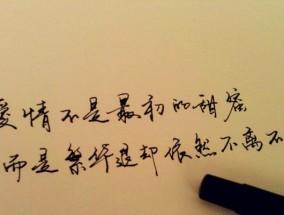 爱情不是最初的甜蜜
而是繁华退却依然不离不